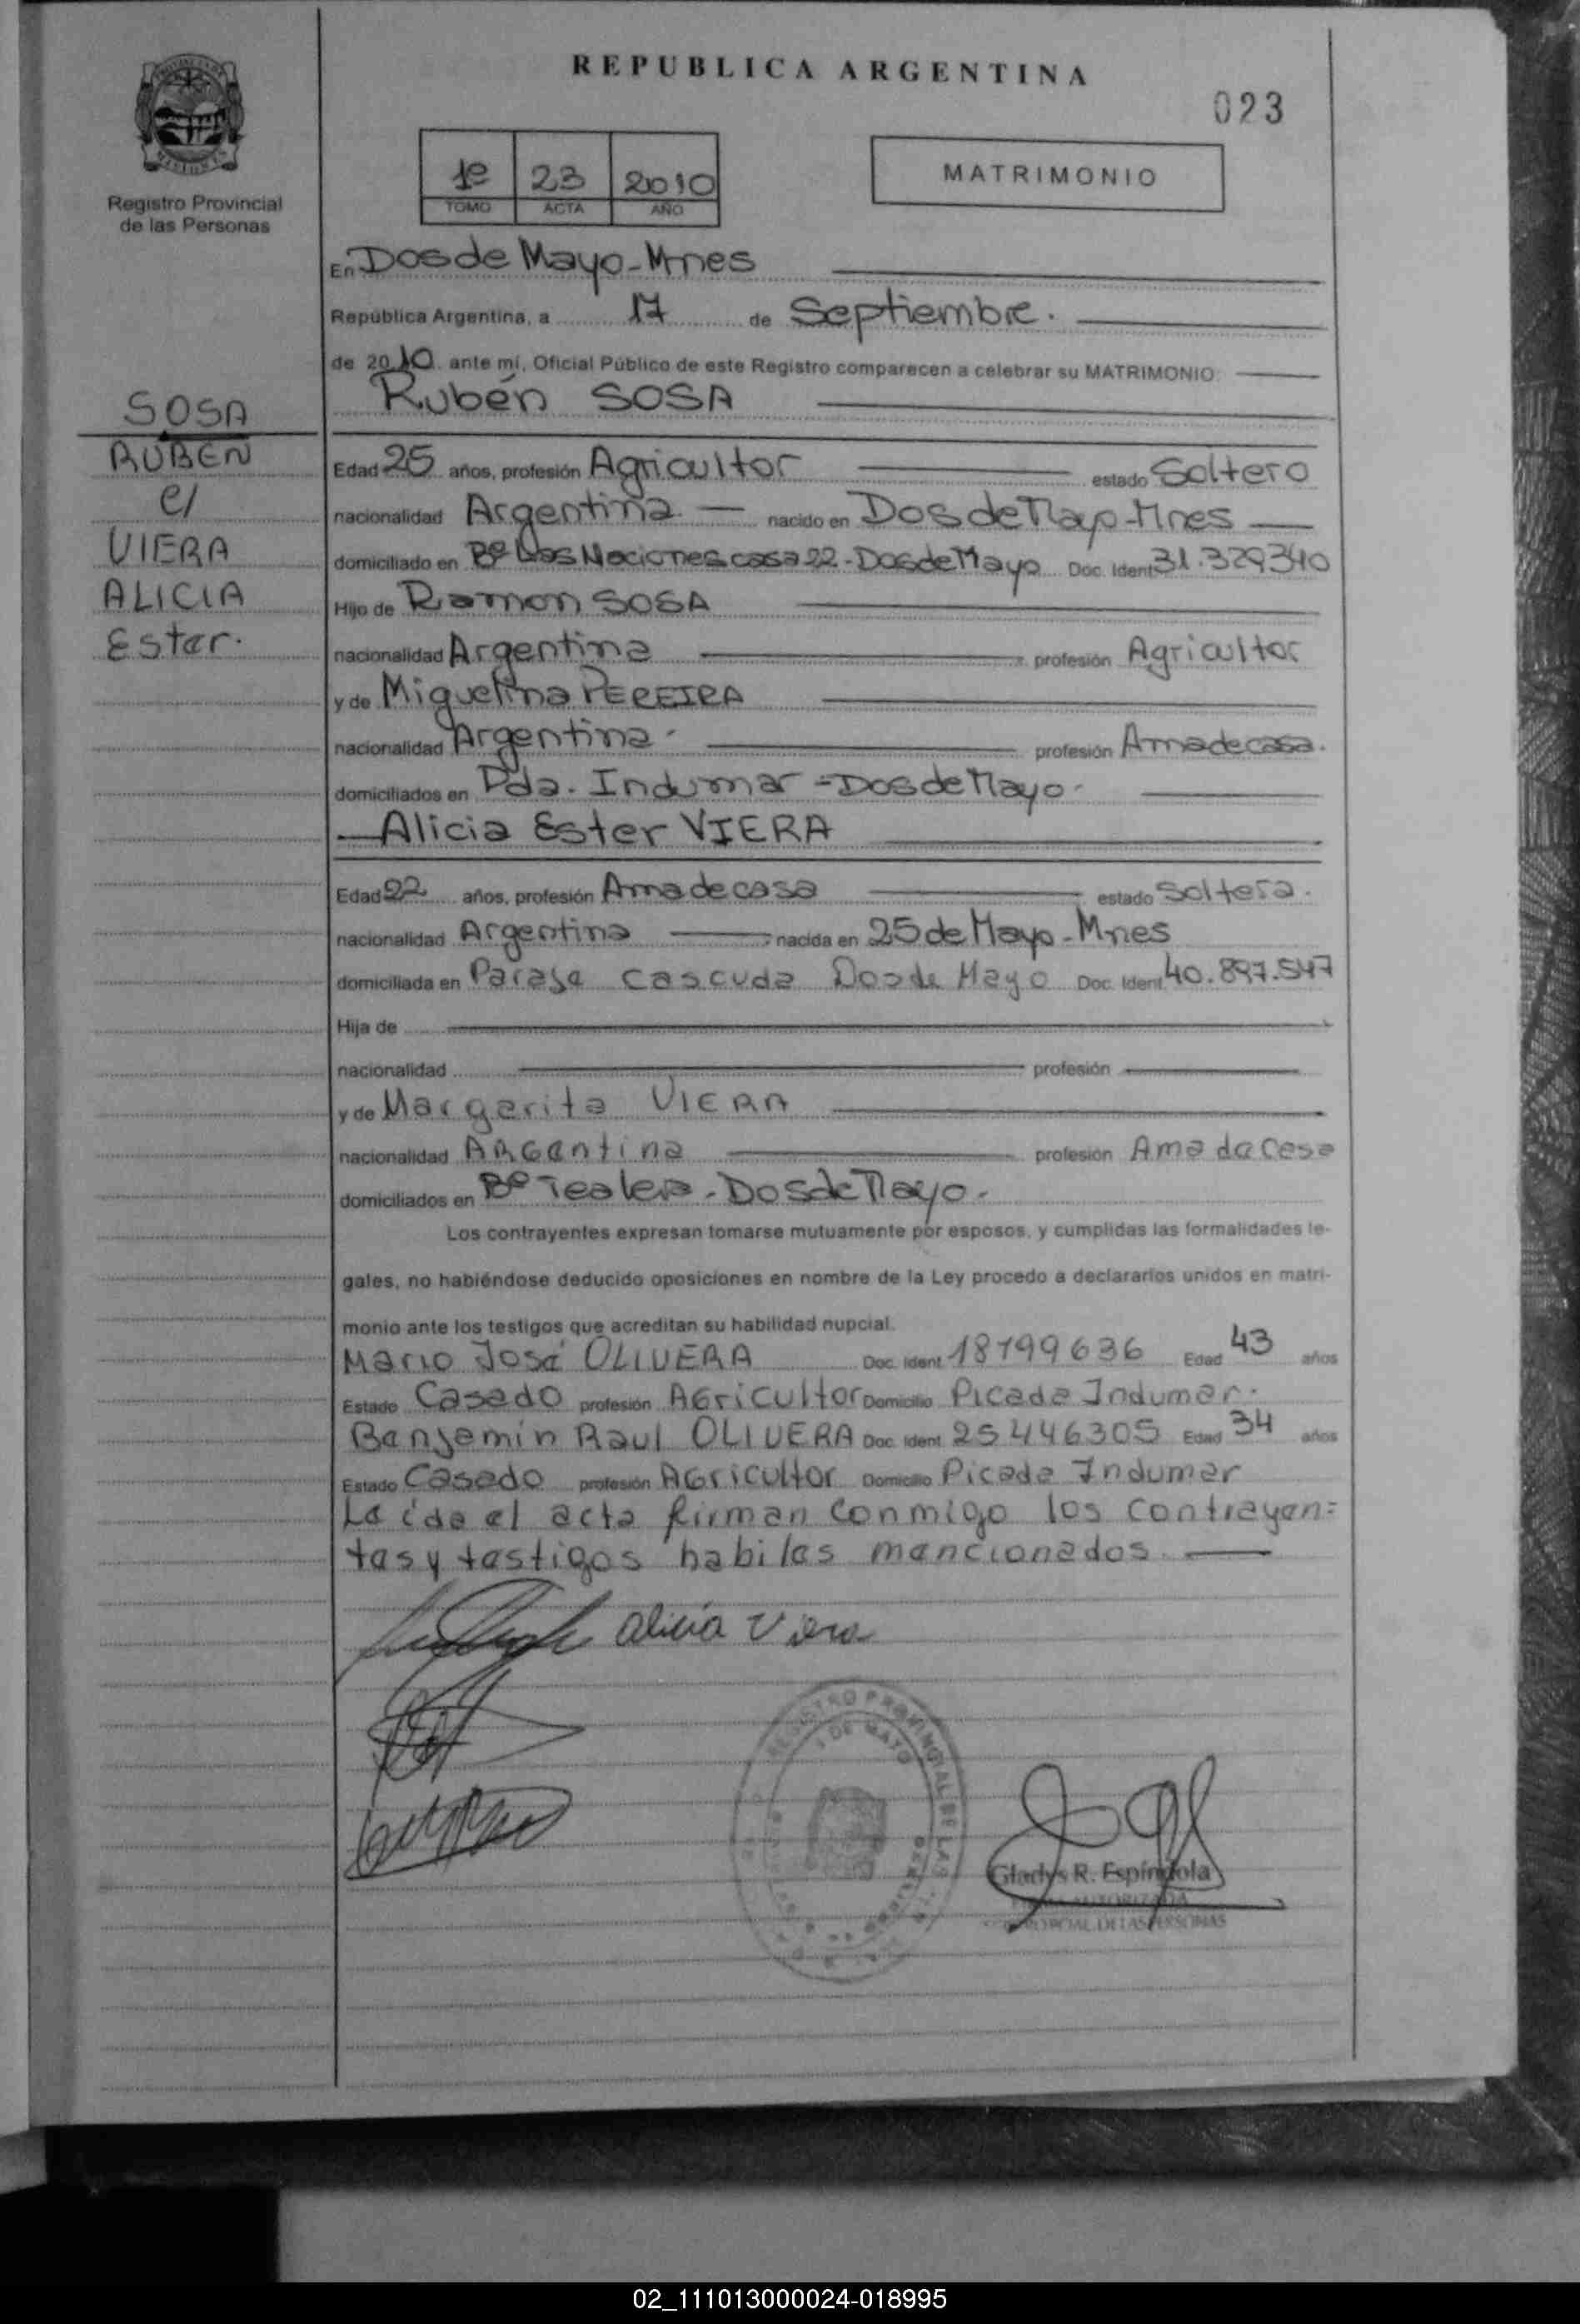 REPUBLICA ARGENTINA
023
1º 23 2010
TOMO ACTA AÑO
MATRIMONIO
Registro Provincial
de las Personas
SOSA
RUBEN
c/
VIERA
ALICIA
Ester.
En Dos de Mayo - Mnes
República Argentina, a 17 de Septiembre.
de 2010 ante mí, Oficial Público de este Registro comparecen a celebrar su MATRIMONIO:
Rubén SOSA
Edad 25 años, profesión Agricultor estado Soltero
nacionalidad Argentina nacido en Dos de Mayo - Mnes
domiciliado en Bº Las Naciones casa 22 - Dos de Mayo Doc. Ident 31.329340
Hijo de Ramon SOSA
nacionalidad Argentina profesión Agricultor
y de Miguelina PEREIRA
nacionalidad Argentina - profesión Ama de casa.
domiciliados en Pda. Indumar - Dos de Mayo -
Alicia Ester VIERA
Edad 22 años, profesión Ama de casa estado Soltera.
nacionalidad Argentina nacida en 25 de Mayo - Mnes
domiciliada en Paraje Cascuda Dos de Mayo Doc. Ident 40.897.547
Hija de
nacionalidad profesión
y de Margarita VIERA
nacionalidad ARGentina profesión Ama de Casa
domiciliados en Bº Tealera - Dos de Mayo -
Los contrayentes expresan tomarse mutuamente por esposos, y cumplidas las formalidades le-
gales, no habiéndose deducido oposiciones en nombre de la Ley procedo a declararlos unidos en matri-
monio ante los testigos que acreditan su habilidad nupcial.
Mario José OLIVERA Doc. Ident 18799636 Edad 43 años
Estado Casado profesión AGricultor Domicilio Picada Indumar.
Benjamin Raul OLIVERA Doc. Ident 25446305 Edad 34 años
Estado Casado profesión AGricultor Domicilio Picada Indumar
Leída el acta firman conmigo los contrayen=
tes y testigos habiles mencionados.
Alicia Viera
REGISTRO PROVINCIAL DE LAS
DE MAYO
Gladys R. Espíndola
AUTORIZADA
DE LAS PERSONAS
02_111013000024-018995